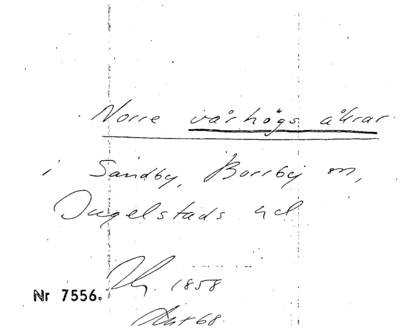 Norre vårhögs åkrar
i Sandby, Borrby sn,
Ingelstads hd
1858
Nr 7556.